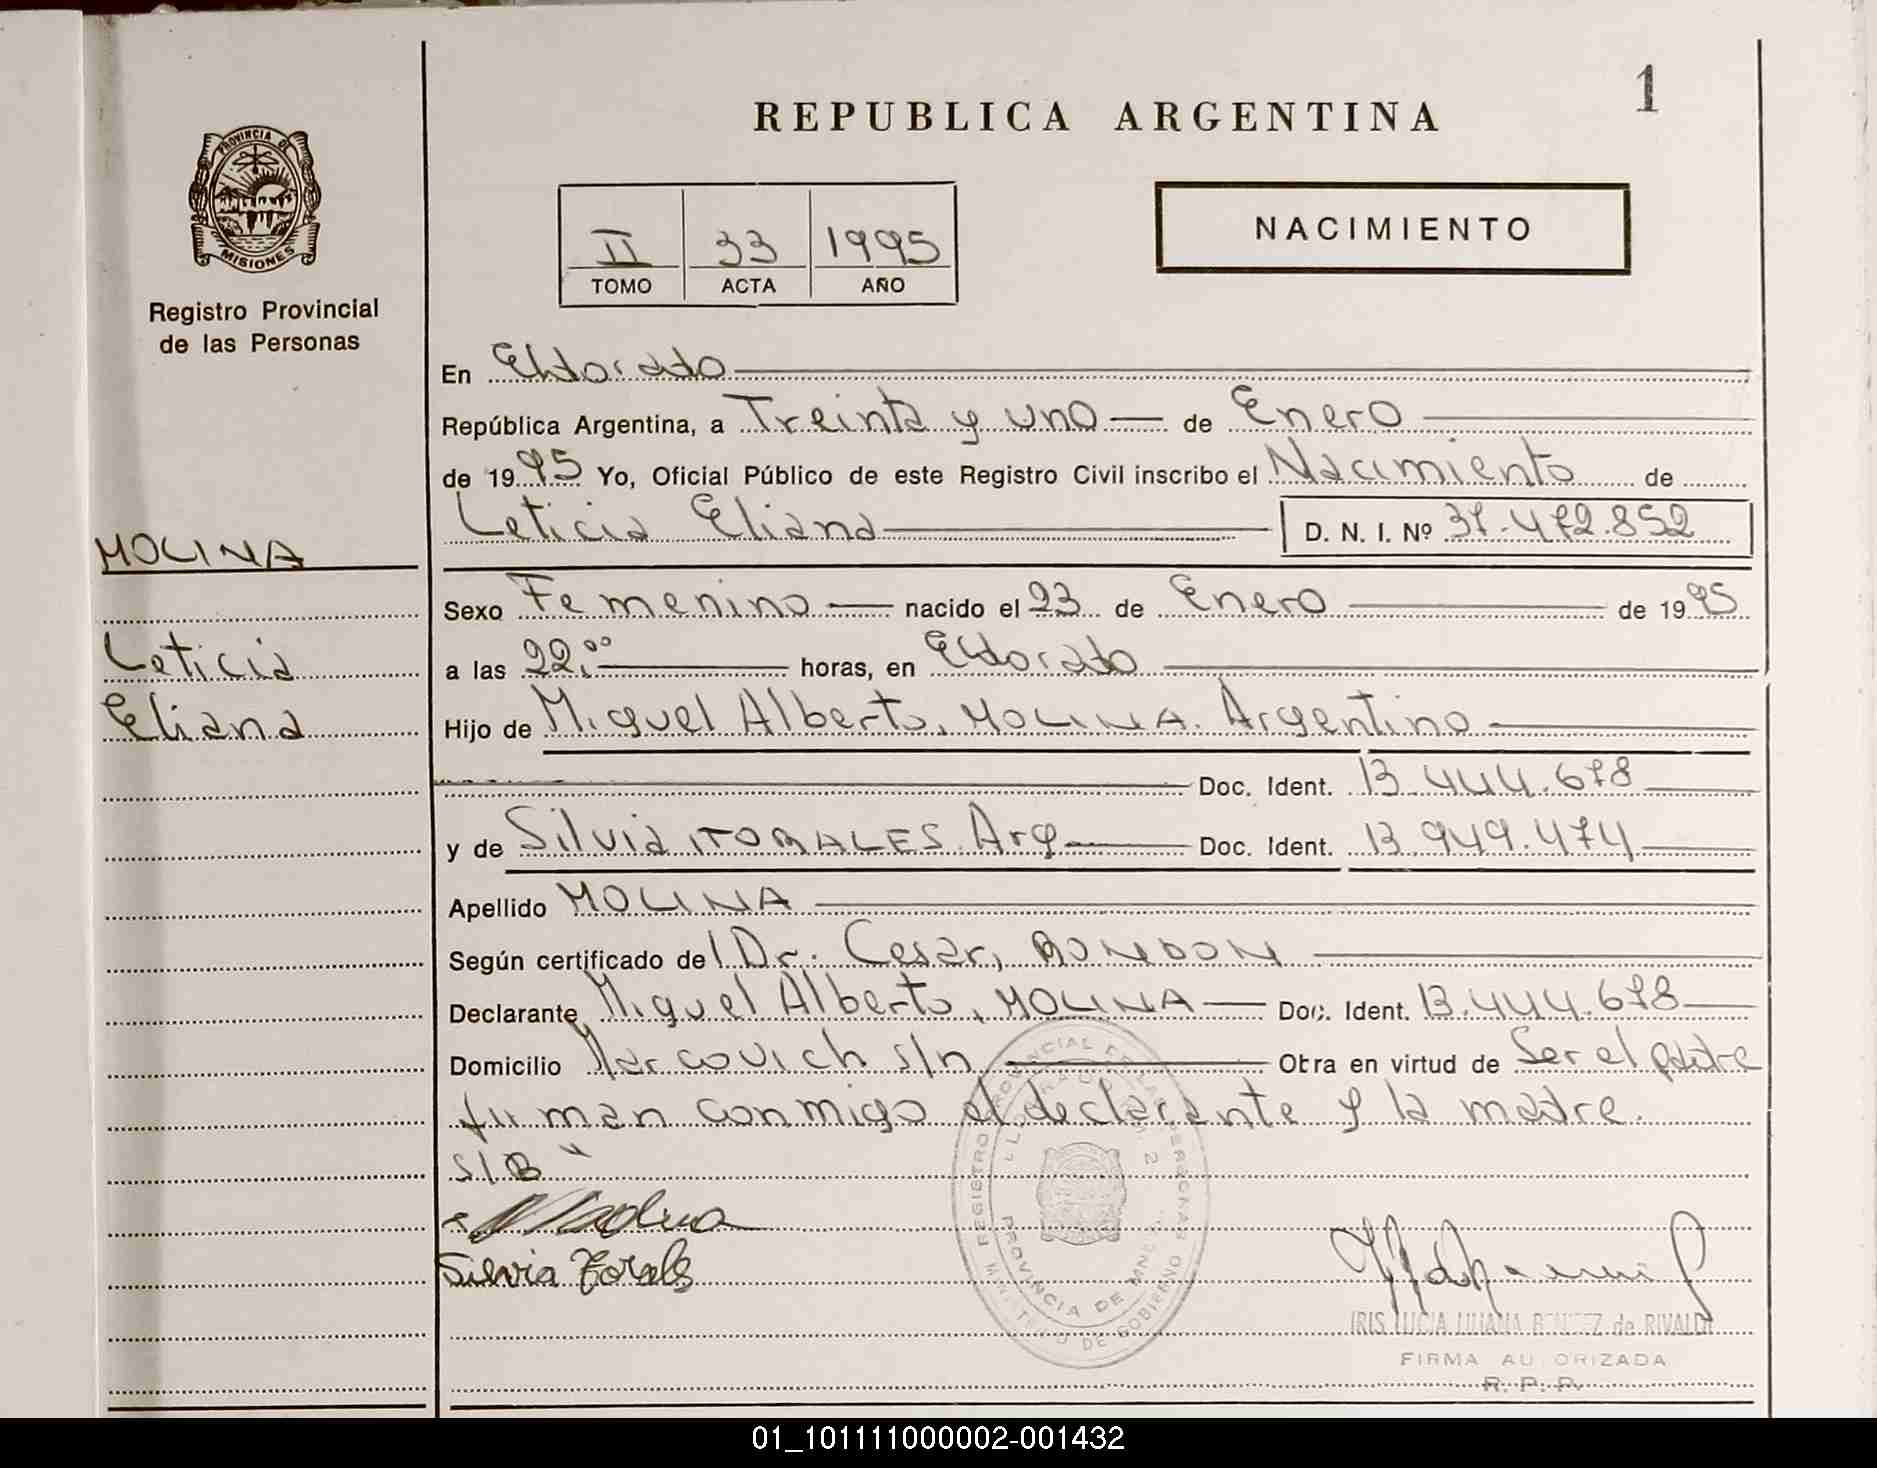 REPUBLICA ARGENTINA
1
PROVINCIA DE MISIONES
Registro Provincial
de las Personas
II 33 1995
TOMO ACTA AÑO
NACIMIENTO
En Eldorado
República Argentina, a Treinta y uno de Enero
de 1995 Yo, Oficial Público de este Registro Civil inscribo el Nacimiento de
Leticia Eliana D. N. I. Nº 37.472.852
MOLINA
Leticia
Eliana
Sexo Femenino nacido el 23 de Enero de 1995
a las 22.00 horas, en Eldorado
Hijo de Miguel Alberto, MOLINA. Argentino
Doc. Ident. 13.444.678
y de Silvia, TORALES. Arg Doc. Ident. 13.949.474
Apellido MOLINA
Según certificado del Dr. Cesar, RONDON
Declarante Miguel Alberto, MOLINA Doc. Ident. 13.444.678
Domicilio Marcovich s/n Obra en virtud de Ser el padre
firman conmigo el declarante y la madre.
S/B
Molina
Silvia Torales
REGISTRO PROVINCIAL DE LAS PERSONAS
PROVINCIA DE MNES.
MINISTERIO DE GOBIERNO
IRIS LUCIA LILIANA BENITEZ de RIVALDI
FIRMA AUTORIZADA
R. P. P.
01_101111000002-001432